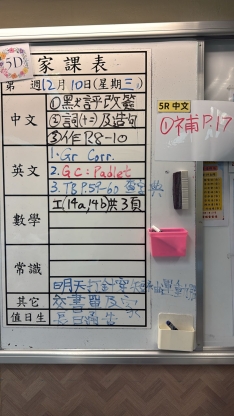 5D
家課表
第 週12月10日(星期三)
中文
①默評改簽
②詞(十二)及造句
③作P.8-10
5R 中文
①補P.17
英文
1. Gr Corr.
2. G.C: Padlet
3. TB P.59-60
數學
工(14a/4b共3頁
常識
明天打針穿
其它
交書
值日生